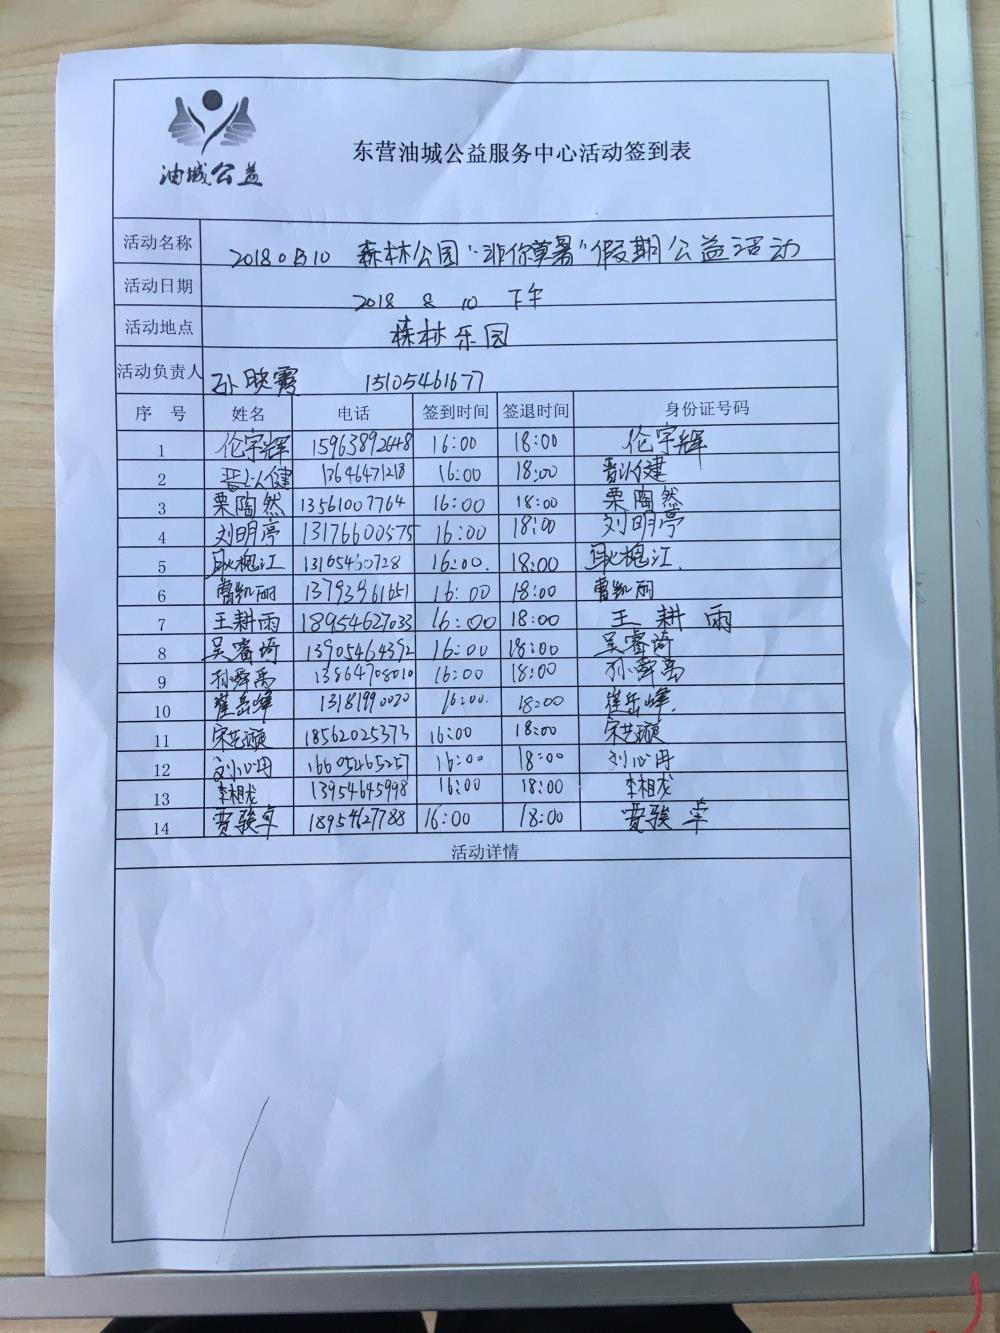 油城公益
东营油城公益服务中心活动签到表
活动名称 20180810 森林公园“非你草暑”假期公益活动
活动日期 2018 8 10 下午
活动地点 森林乐园
活动负责人 孙晓霞 15105461677
序 号 姓名 电话 签到时间 签退时间 身份证号码
1 伦宇辉 15963892648 16:00 18:00 伦宇辉
2 晋以健 13646471218 16:00 18:00 晋以健
3 栗陶然 13561007764 16:00 18:00 栗陶然
4 刘明亭 13176600575 16:00 18:00 刘明亭
5 耿槐江 13105460728 16:00. 18:00 耿槐江.
6 曹凯丽 13793961651 16:00 18:00 曹凯丽
7 王耕雨 18954627033 16:00 18:00 王耕雨
8 吴睿琦 13905464392 16:00 18:00 吴睿琦
9 孙舜禹 13864708010 16:00 18:00 孙舜禹
10 崔岳峰 13181990020 16:00. 18:00 崔岳峰.
11 宋艺璇 18562025373 16:00 18:00 宋艺璇
12 刘心冉 16605465257 16:00 18:00 刘心冉
13 李相龙 13954645998 16:00 18:00 李相龙
14 费骏卓 18954627788 16:00 18:00 费骏卓
活动详情